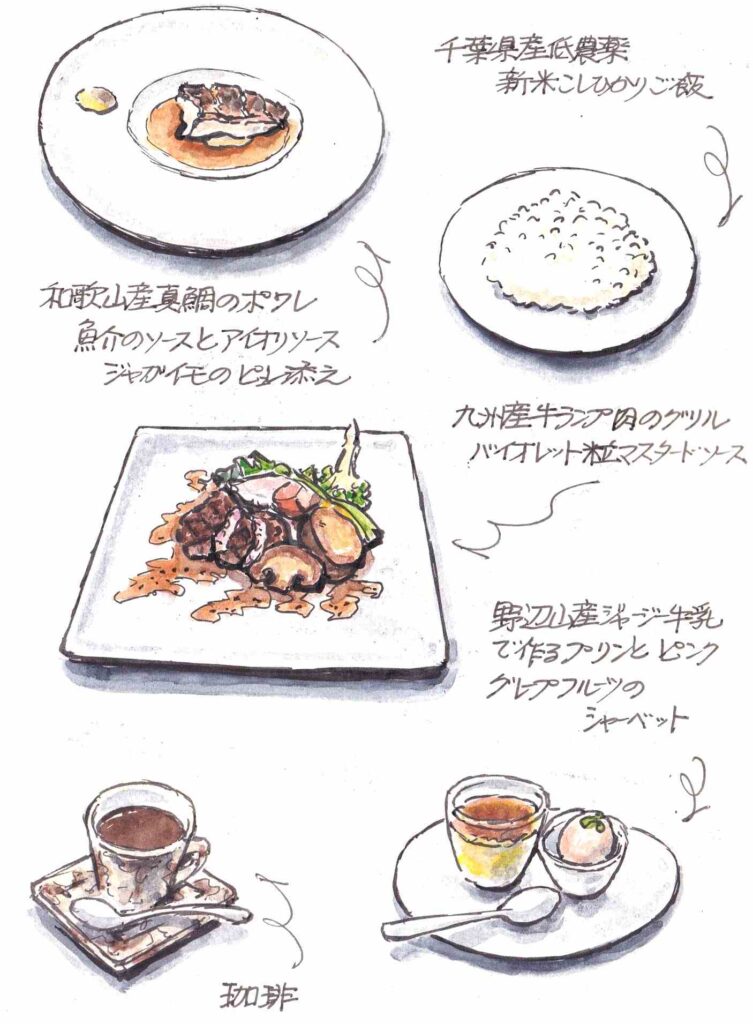 千葉県産低農薬
新米こしひかりご飯
和歌山産真鯛のポワレ
魚介のソースとアイオリソース
ジャガイモのピュレ添え
九州産牛ランプ肉のグリル
バイオレット粒マスタードソース
野辺山産ジャージー牛乳
で作るプリンとピンク
グレープフルーツの
シャーベット
珈琲